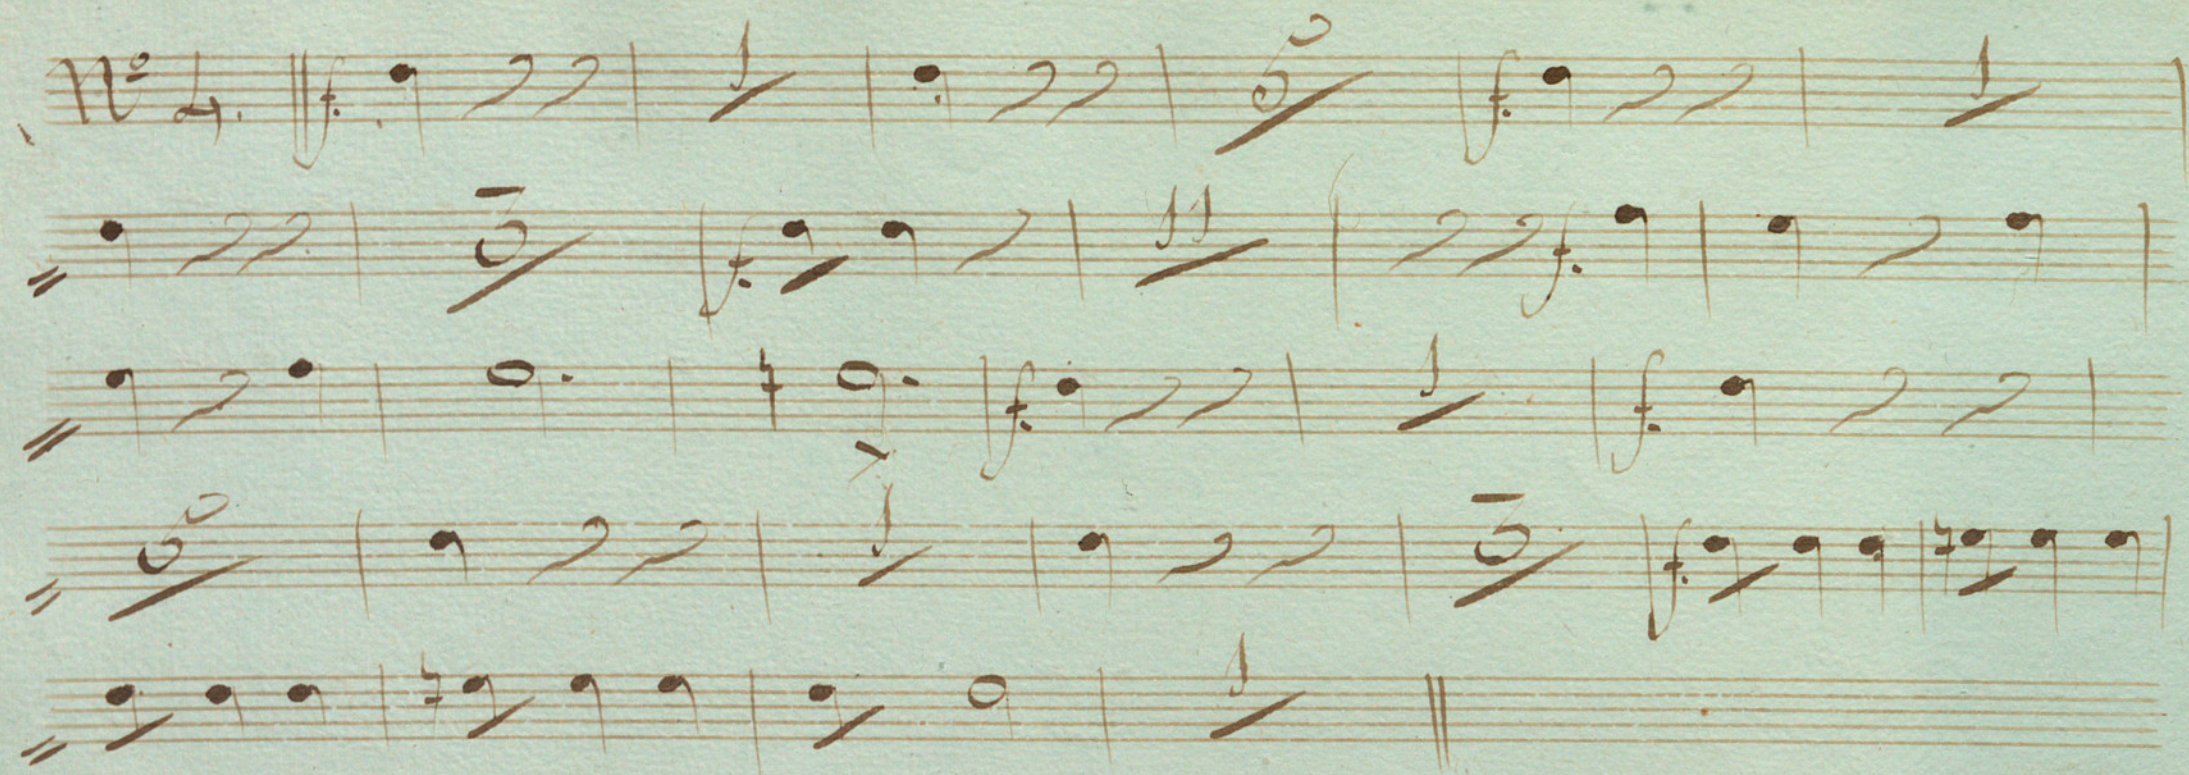 Nº 4. f. 1 5 f. 1
3 f. 11 f.
f. 1 f.
5 1 3 f.
1